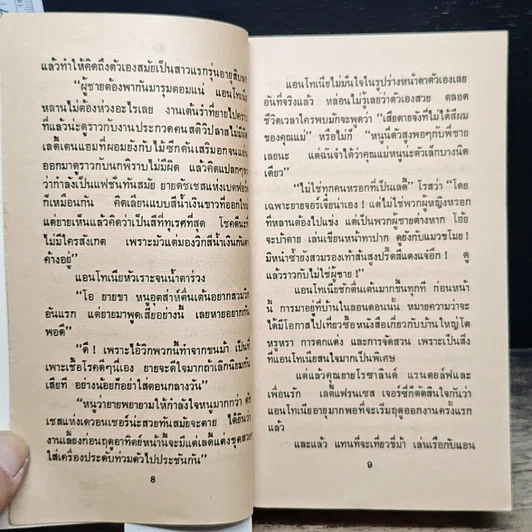 แล้วทำให้คิดถึงตัวเองสมัยเป็นสาวแรกรุ่นอายุสิบ
“ผู้ชายต้องพากันมารุมตอมแน่ แอนโทเนีย
หลานไม่ต้องห่วงอะไรเลย งานเต้นรำที่ยายไปคราว
ที่แล้วน่ะดูราวกับงานประกวดคนสติวิปลาส
เลดี้เดนแฮมที่ผอมยังกับไม้ซีกดันเสริมอกจนแอ่น
ออกมาดูราวกับนกพิราบไม่มีผิด แล้วคิดแปลกๆ
ว่ากำลังเป็นแฟชั่นทันสมัย ยายดัชเชสแห่ง
ก็เหมือนกัน คิดเลียนแบบสีน้ำเงินขาวที่ออกใหม่
แต่ยายเห็นแล้วคิดว่าเป็นสีที่ทุเรศที่สุด โชคดี
ไม่มีใครสังเกต เพราะมัวแต่มองวิกสีน้ำเงิน
ค้างอยู่”
แอนโทเนียหัวเราะจนน้ำตาร่วง
“โอ ยายขา หนูอุตส่าห์ตื่นเต้นอยากสวมวิก
อันแรก แต่ยายมาพูดเสียอย่างนี้ เลยหายอยาก
พอดี”
“ดี ! เพราะไอ้วิกพวกนี้ทำจากขนม้า เป็นที่
เพาะเชื้อโรคดีๆนี่เอง ยายจะดีใจมากถ้าเลิกนิยม
เสียที อย่างน้อยก็อย่าใส่ตอนกลางวัน”
“หนูว่ายายพยายามให้กำลังใจหนูมากกว่า ดัช
เชสแห่งเดวอนเชอร์น่ะสวยทันสมัยจะตาย ได้ยินว่า
งานเลี้ยงก่อนฤดูอาทิตย์หน้านี้จะมีแต่เลดี้แต่งชุดสวยๆ
ใส่เครื่องประดับท่วมตัวไปประชันกัน”
8
แอนโทเนียไม่มั่นใจในรูปร่างหน้าตาตัวเองเลย
อันที่จริงแล้ว หล่อนไม่รู้เลยว่าตัวเองสวย ตลอด
ชีวิตเวลาใครพบมักจะพูดว่า “เสียดายจังที่ไม่ได้สีผม
ของคุณแม่” หรือไม่ก็ “หนูนี่ตัวสูงพอๆกับพี่ชาย
เลยนะ แต่ฉันจำได้ว่าคุณแม่หนูน่ะตัวเล็กบางนิด
เดียว”
“ไม่ใช่ทุกคนหรอกที่เป็นเลดี้” โรสว่า “โดย
เฉพาะยายจอร์เจี่ยน่าเอง ! แต่ไม่ใช่พวกผู้หญิงหรอก
ที่หลานต้องไปแข่ง แต่เป็นพวกผู้ชายต่างหาก โอ้ย
จะบ้าตาย เล่นเขียนหน้าทาปาก ดูยังกับแมวขโมย !
มิหนำซ้ำยังสวมรองเท้าส้นสูงปรี๊ดสีแดงแจ๋อีก ! ดู
แล้วราวกับไม่ใช่ผู้ชาย !”
แอนโทเนียชักตื่นเต้นมากขึ้นทุกที ก่อนหน้า
นี้ การมาอยู่ที่บ้านในลอนดอนนั้น หมายความว่าจะ
ได้มีโอกาสไปเที่ยวซื้อหนังสือเกี่ยวกับบ้านใหญ่โต
หรูหรา การตกแต่ง และการจัดสวน เพราะเป็นสิ่งที่
แอนโทเนียสนใจมากเป็นพิเศษ
แต่แล้วคุณยายโรซาลินด์ แรนดอล์ฟและ
เพื่อนรัก เลดี้แฟรนเซส เจอร์ซี่ก็ตัดสินใจกันว่า
แอนโทเนียอายุมากพอที่จะเริ่มฤดูออกงานครั้งแรก
แล้ว
และแล้ว แทนที่จะเที่ยวขี่ม้า เล่นเรือกับแอน
9